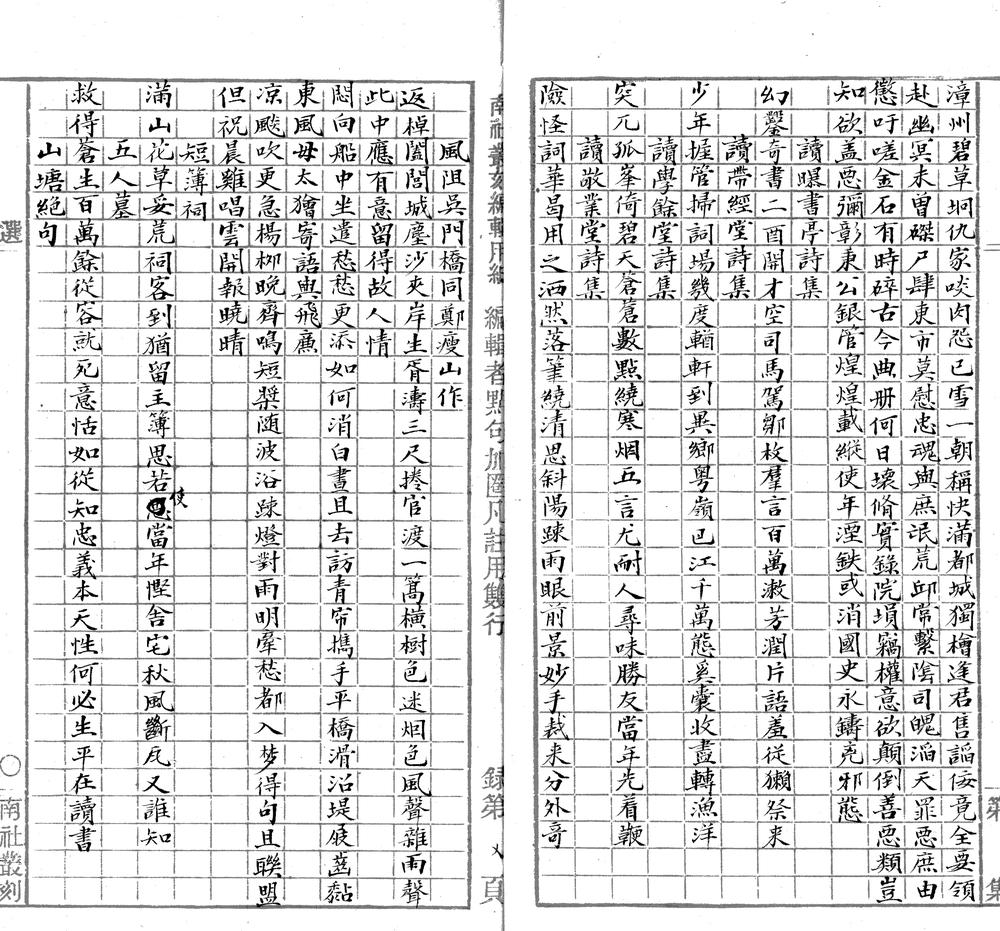 漳州碧草坰仇家啖肉怨已雪一朝稱快滿都城獨檜逢君售謟佞竟全要領
赴幽冥未曾磔尸肆東市莫慰忠魂與庶氓荒邱常繫陰司魄滔天罪惡庶由
懲吁嗟金石有時碎古今典册何日壞脩實錄院塤竊權意欲顛倒善惡類豈
知欲盖惡彌彰東公銀管煌煌載縱使年湮鉄或消國史永鑄尭邪態
讀曝書亭詩集
幻鑿奇書二酉開才空司馬駕鄒枚羣言百萬漱芳潤片語羞從獺祭来
讀帶經堂詩集
少年握管掃詞場幾度輶軒到異鄉粤嶺巴江千萬態奚囊收盡轉漁洋
讀學餘堂詩集
突兀孤峯倚碧天蒼蒼數點繞寒烟五言尤耐人尋味勝友當年先着鞭
讀敬業堂詩集
險怪詞華昌用之洒然落筆繞清思斜陽踈雨眼前景妙手裁来分外奇
風阻吳門橋同鄭瘦山作
返棹闔閭城塵沙夾岸生胥濤三尺捲官渡一篙橫樹色迷烟色風聲雜雨聲
此中應有意留得故人情
悶向船中坐遣愁愁更添如何消白晝且去訪青帘携手平橋滑沿堤屐齒黏
東風毋太獪寄語與飛廉
凉颸吹更急楊柳晚齊鳴短槳随波浴踈燈對雨明羣愁都入梦得句且聯盟
但祝晨雞唱雲開報曉晴
短簿祠
滿山花草妥荒祠客到猶留主簿思若使當年慳舍宅秋風斷瓦又誰知
五人墓
救得蒼生百萬餘從容就死意恬如從知忠義本天性何必生平在讀書
山塘絕句
南社叢刻編輯用紙
編輯者點句加圈凡註用雙行
錄第
頁
第
集
選
南社叢刻